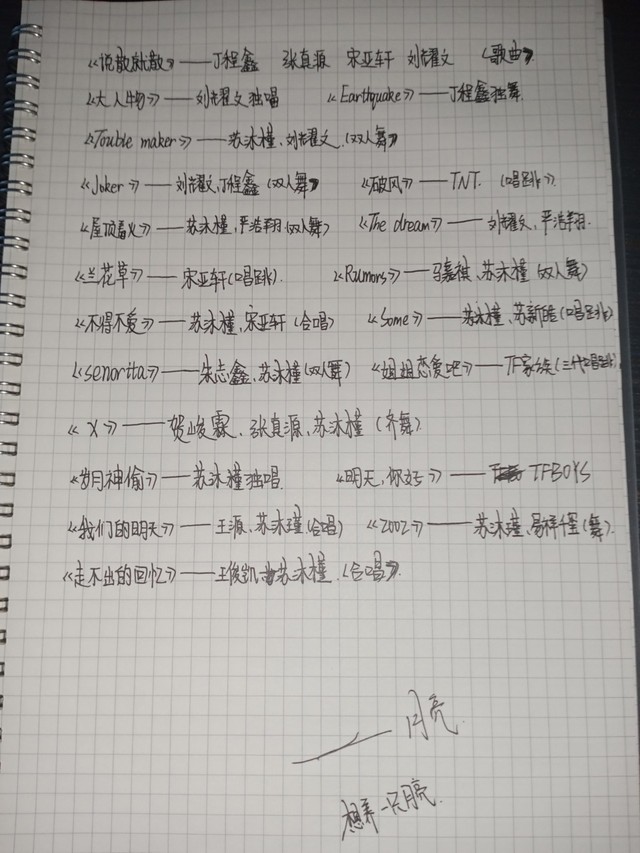 《说散就散》——丁程鑫 张真源 宋亚轩 刘耀文 《歌曲》
《大人物》——刘耀文独唱 《Earthquake》——丁程鑫独舞
《Touble maker》——苏沐槿、刘耀文 (双人舞)
《Joker》——刘耀文,丁程鑫 (双人舞) 《破风》——TNT. (唱跳)
《屋顶着火》——苏沐槿,严浩翔(双人舞) 《The dream》——刘耀文,严浩翔.
《兰花草》——宋亚轩(唱跳). 《Rumors》——马嘉祺,苏沐槿(双人舞)
《不得不爱》——苏沐槿,宋亚轩(合唱) 《Some》——苏沐槿,苏新皓(唱跳)
《senorita》——朱志鑫,苏沐槿(双人舞) 《姐姐恋爱吧》——TF家族(三代唱跳)
《X》——贺峻霖,张真源,苏沐槿(齐舞)
《岁月神偷》——苏沐槿独唱 《明天,你好》——TFBOYS
《我们的明天》——王源、苏沐瑾(合唱) 《2002》——苏沐瑾,易烊千玺(舞).
《走不出的回忆》——王俊凯苏沐槿.(合唱).
——月亮
想养一只月亮.